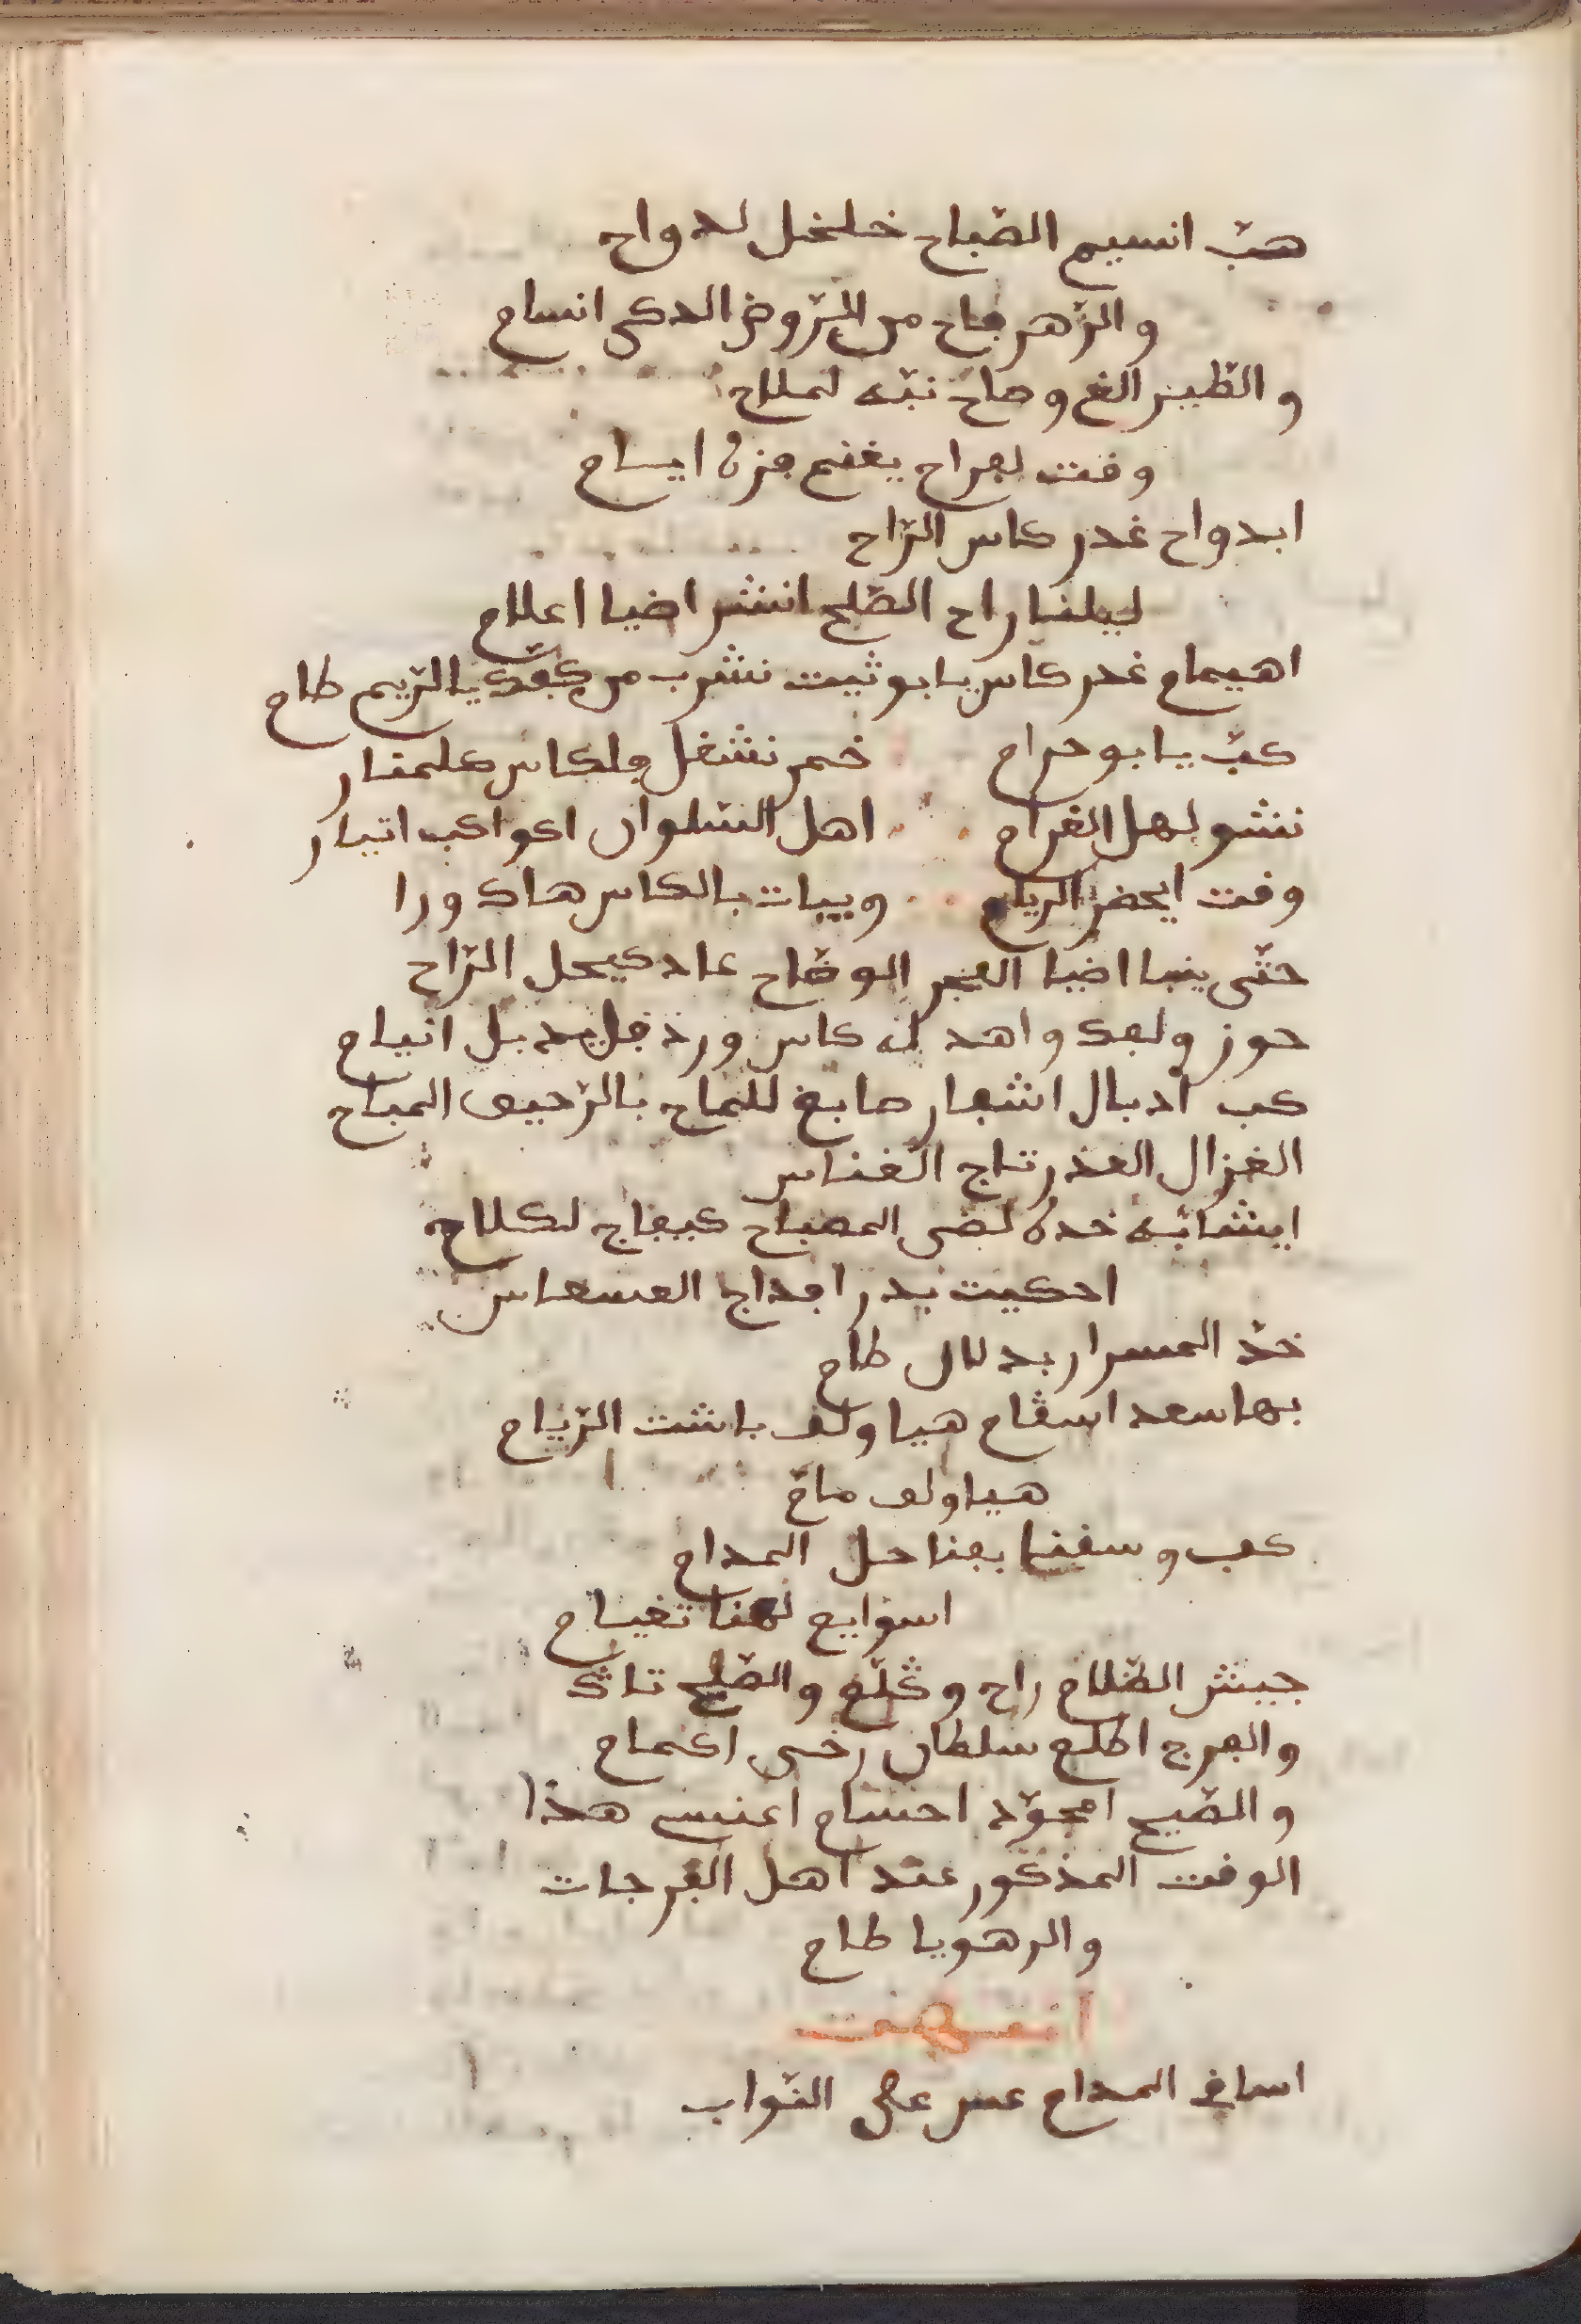 هبّ انسيم الصّباح خلخل لدواح
والزّهر فاح من الرّوض الدكي انسام
والطّير الغ وصاح نبّه لملاح
وقت لفراح يغنم فزن ايسام
ابدواح غدر كاس الرّاح
ليلنا راح الصّلح انشر اضيا اعلام
اهيمام غدر كاس يابو ثيت نشرب من كفّك يالرّيم طام
كبّ يا بو حرام خمر نشغل فلكاس كلمنار
نشو لهل الغرام اهل السّلوان اكواكب اتيار
وقت ايحضر الريام ويبات بالكاس هاك ورا
حتّى ينبا اضيا الفجر الوضّاح عاد كيحل الرّاح
حوز ولفك واهد له كاس ورد قل يدبل انيام
كب ادبال اشفار صابغ للماح بالرّحيق المباح
الغزال العذر تاج الغناس
ايشابه خده لضى المصباح كيفاج لكلاح
احكيت بدر افداج العسعاس
خدّ المسرار بدلال طام
بها سعد اسقام هيا ولف باشت الرّيام
هيا ولف مامّ
كب وسقنا بفنا حل المدام
اسوايع لهنا تغيام
جيش الظّلام راح وڭلّع والصّلح تاك
والفرج اطلع سلطان رخى اكمام
والصّبح امجرّد احسام اغنيى هذا
الوقت المذكور عند اهل الفرجات
والرهو يا طام
انتهت
اساقي المدام عس على النّواب